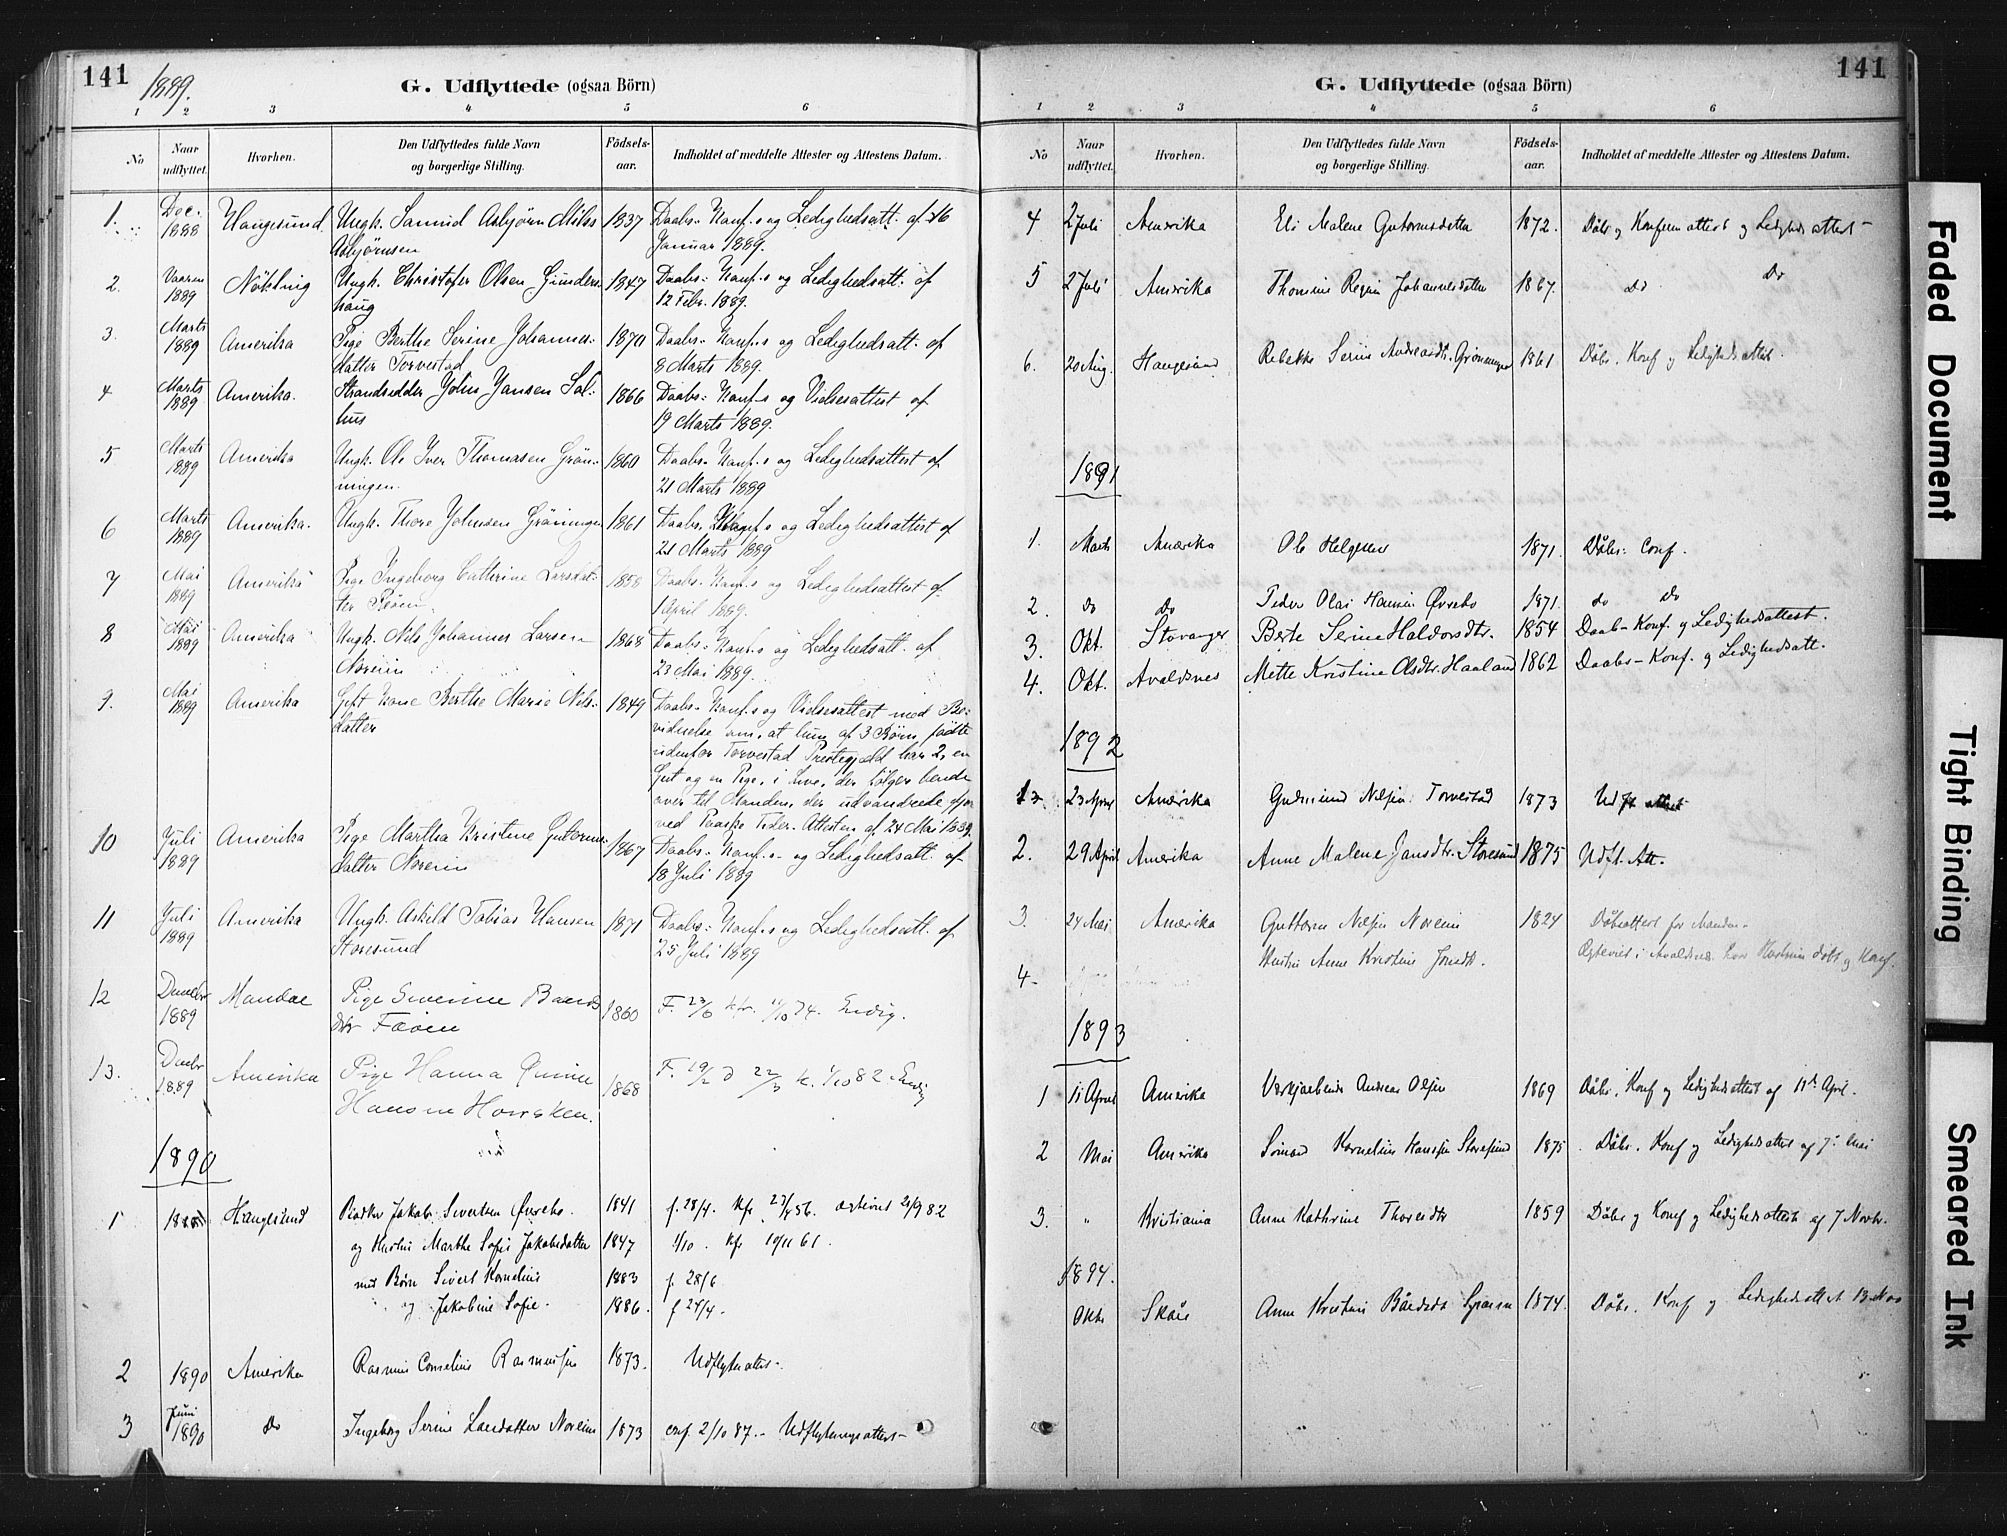 141
1889.
G. Udflyttede (ogsaa Börn)
1 2 3 4 5 6
No Naar udflyttet. Hvorhen. Den Udflyttedes fulde Navn og borgerlige Stilling. Födsels-aar. Indholdet af meddelte Attester og Attestens Datum.
1. Dec. 1888 Haugesund Ungk. Samuel Asbjörn Asbjörnsen 1837 Daabs- Konf.s og Ledighedsatt. af 16 Januar 1889.
2. Vaaren 1889 Nökling Ungk. Christofer Olsen Gunders-haug 1847 Daabs- Konf.s og Ledighedsatt. af 12 Febr. 1889.
3. Marts 1889 Amerika Pige Berthe Serine Johannes-datter Torvestad 1870 Daabs- Konf.s og Ledighedsatt. af 8 Marts 1889.
4 Marts 1889 Amerika. Strandsidder John Jansen Sal-hus 1866 Daabs- Konf.s og Vielsesattest af 19 Marts 1889.
5 Marts 1889 Amerika Ungk. Ole Iver Thomasen Grön-ningen 1860 Daabs- Konf.s og Ledighedsattest af 21 Marts 1889
6 Marts 1889 Amerika. Ungk. Thore Johnsen Gröningen 1861 Daabs- Konf.s og Ledighedsattest af 21 Marts 1889
7 Mai 1889 Amerika Pige Ingeborg Catherine Larsdat-ter 1858 Daabs- Konf.s og Ledighedsattest af 1 April 1889.
8 Mai 1889 Amerika Ungk. Nils Johannes Larsen Noreim 1868 Daabs- Konf.s og Ledighedsatt. af 23 Mai 1889.
9. Mai 1889 Amerika Gift Kone Berthe Marie Nils-datter 1849 Daabs- Konf.s og Vielsesattest med Be-
vidnelse om, at hun af 3 Börn, födte
udenfor Torvestad Prestegjæld har 2, en
Gut og en Pige, i Live, der fölger hende
over til Manden, der udvandrede
ved Paaske Tider. Attesten af 24 Mai 1889.
10 Juli 1889 Amerika Pige Martha Kristine Gutorms-datter Noreim 1867 Daabs- Konf.s og Ledighedsatt. af 18 Juli 1889
11 Juli 1889 Amerika Ungk. Askild Tobias Hansen Storesund 1871 Daabs- Konf.s og Ledighedsatt. af 25 Juli 1889
12 Decebr 1889 Mandal Pige Severine Baards dtr Fæöen 1860 F. 23/6 kfr. 11/10 74. Ledig.
13. Decbr 1889 Amerika Pige Hanna Hansen 1868 F. 19/2 d 22/3 k. 1/10 82. Ledig
1890
1 Haugesund Jakob Sivertsen Øvrebø. 1841 f. 28/4. kfr 56. ægteviet 21/9 82
og Hustru Marthe Sofie Jakobsdatter 1847 1/10. kfr 10/11 61.
med Børn Sivert Kornelius 1883 f. 28/6
og Jakobine Sofie. 1886. f 24/4.
2 1890 Amerika Rasmus Cornelius Rasmussen 1873. Udflytn.attest.
3 Juni 1890 Do Ingeborg Serine Larsdatter Noreim 1873 conf 2/10 87. - Udflytningsattest
141
G. Udflyttede (ogsaa Börn)
1 2 3 4 5 6
No Naar udflyttet. Hvorhen. Den Udflyttedes fulde Navn og borgerlige Stilling. Födsels-aar. Indholdet af meddelte Attester og Attestens Datum.
4 2 Juli Amerika Eli Malene Gutormsdatter 1872. Døbs og Konfirm attest og Ledighedsattest
5 2 Juli Amerika Thomine Regine Johannesdatter 1867. do Do
6. 20 Aug. Haugesund Rebekka Serine Andreasdtr. Grønningen 1861 Døbs. Konf og Ledighedsattest.
1891
1. Marts Amerika Ole Helgesen 1871. Døbs. Conf.
2. do do Peder Olai Hansen Øvrebø 1871. do do
3. Okt. Stavanger Berte Serine Haldorsdtr. 1854 Daab- Konf. og Ledighedsattest.
4. Okt. Avaldsnes Mette Kristine Olsdtr. Haaland 1862 Daabs- Konf. og Ledighedsatt.
1892
1. 23 April Amerika Gudmund Nilsen Torvestad 1873 Udfl attest
2. 29 April Amerika Anne Malene Jansdtr. Storesund 1875 Udfl. Att.
3. 24 Mai Amerika Guttorm Nilsen Noreim 1824 Døbsattest for Manden.
4 Hustru Anne Kristine Jonsdtr. Ægteviet i Avaldsnes. Hustruen døbt og Konf.
1893
1 11 April Amerika Andreas Olsen 1869 Døbs. Konf og Ledighedsattest af 11te April.
2 Mai Amerika Kornelius Hansen Storesund 1875 Døbs. Konf og Ledighedsattest af 7. Mai
3. " Kristiania Anne Kathrine Thoresdtr 1859 Døbs og Konf og Ledighedsattest af 7 Novbr.
1894.
Oktr Skåre Anne Kristine Bårdsdtr 1874. Døbs. Konf og Ledighedsattest 13 Nov
Faded Document
Tight Binding
Smeared Ink